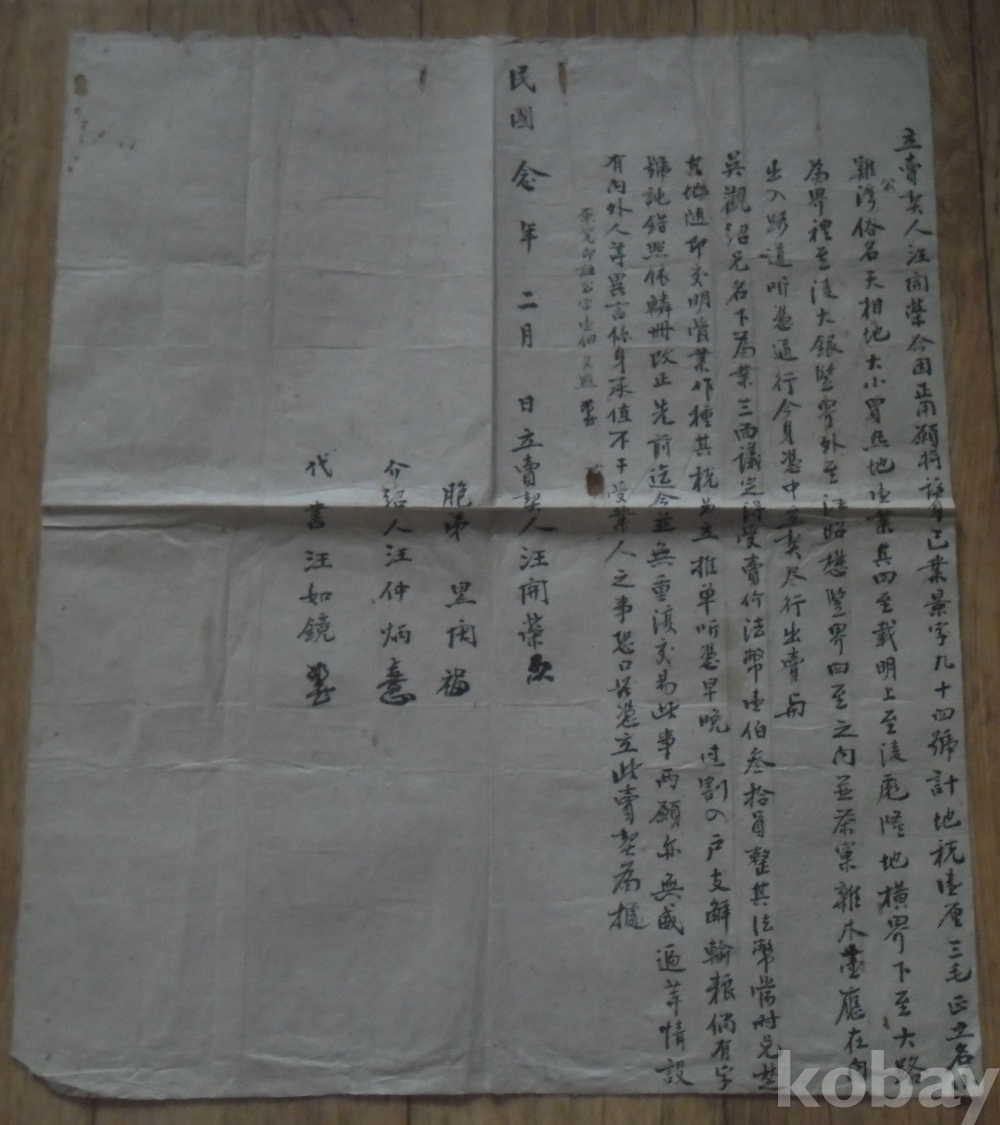 立賣契人汪開榮今因正用願將該身己業景字九十四號計地稅壹厘三毛正土名
雞公灣俗名天相地大小買熟地壹業其四至載明上至後尾隆地橫界下至大路
為界裡至後大銀塋界外至汪昭懋塋界四至之內並茶窠雜木壹應在內
出入路道听憑通行今身憑中立契尽行出賣與
吳觀紹兄名下為業三面議定得受賣价法幣壹伯叁拾員整其法幣當附兄其
其地隨即交明管業作種其稅另立推单听憑早晚过割入户支解輸粮倘有字
號訛錯照依鱗册改正先前迄今並無重複交易此事两願亦無威逼等情設
有內外人等異言係身承值不干受業人之事恐口無憑立此賣契為據
公字壹伯
民國念年二月 日立賣契人汪開榮
胞弟 開福
介紹人汪仲炳
代書汪如鏡
kobay